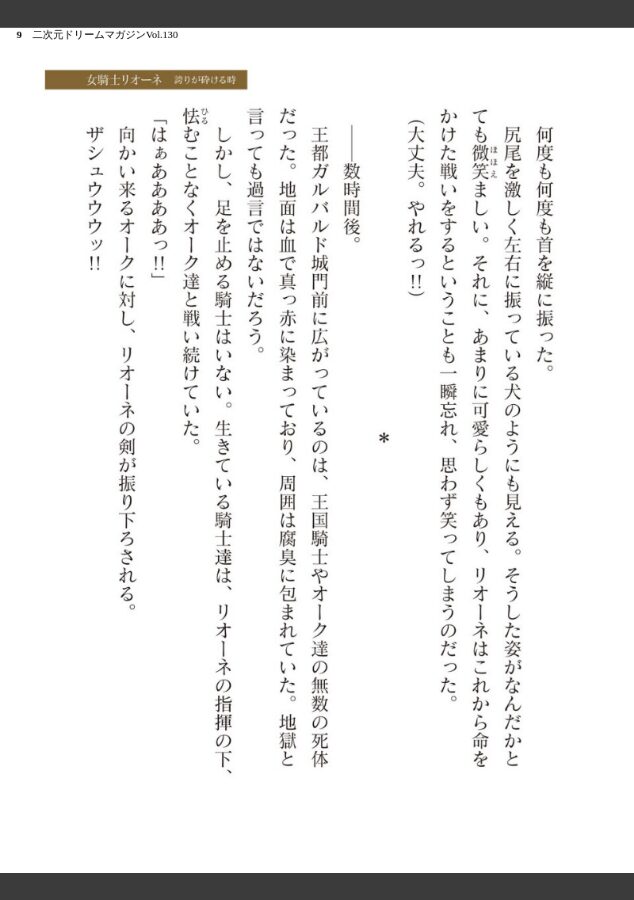 9 二次元ドリームマガジンVol.130
女騎士リオーネ 誇りが砕ける時
何度も何度も首を縦に振った。
尻尾を激しく左右に振っている犬のようにも見える。そうした姿がなんだかと
ても微笑ましい。それに、あまりに可愛らしくもあり、リオーネはこれから命を
かけた戦いをするということも一瞬忘れ、思わず笑ってしまうのだった。
(大丈夫。やれるっ!!)
*
――数時間後。
王都ガルバルド城門前に広がっているのは、王国騎士やオーク達の無数の死体
だった。地面は血で真っ赤に染まっており、周囲は腐臭に包まれていた。地獄と
言っても過言ではないだろう。
しかし、足を止める騎士はいない。生きている騎士達は、リオーネの指揮の下、
怯むことなくオーク達と戦い続けていた。
「はぁああああっ!!」
向かい来るオークに対し、リオーネの剣が振り下ろされる。
ザシュウウウッ!!